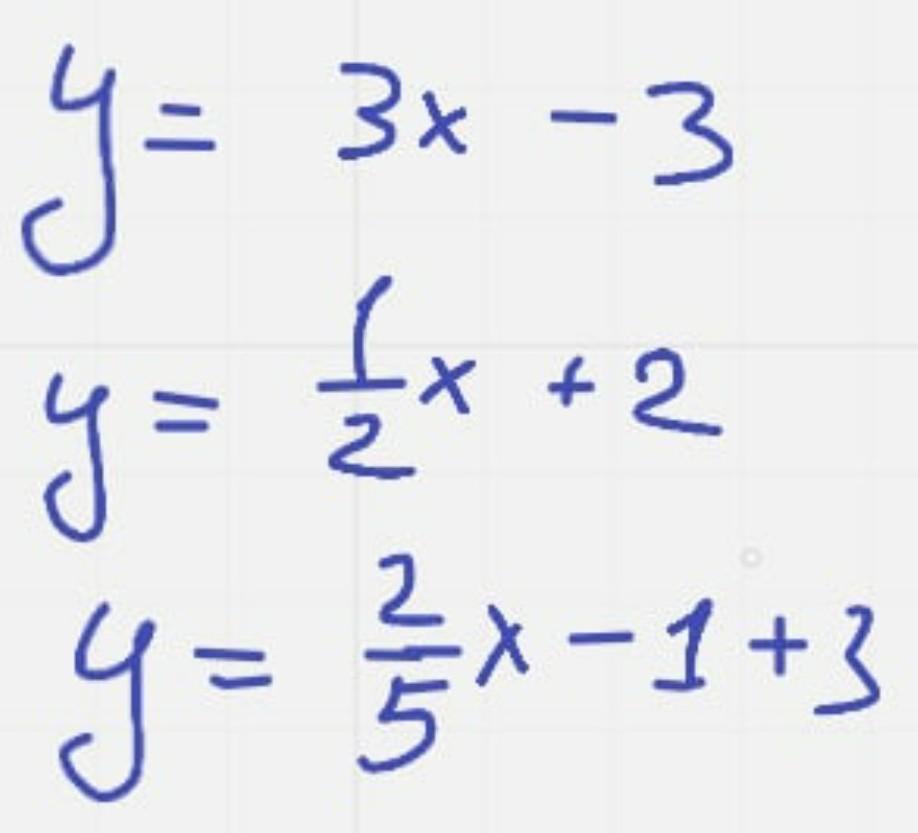 y = 3x - 3
y = 1/2 x + 2
y = 2/5 x - 1 + 3